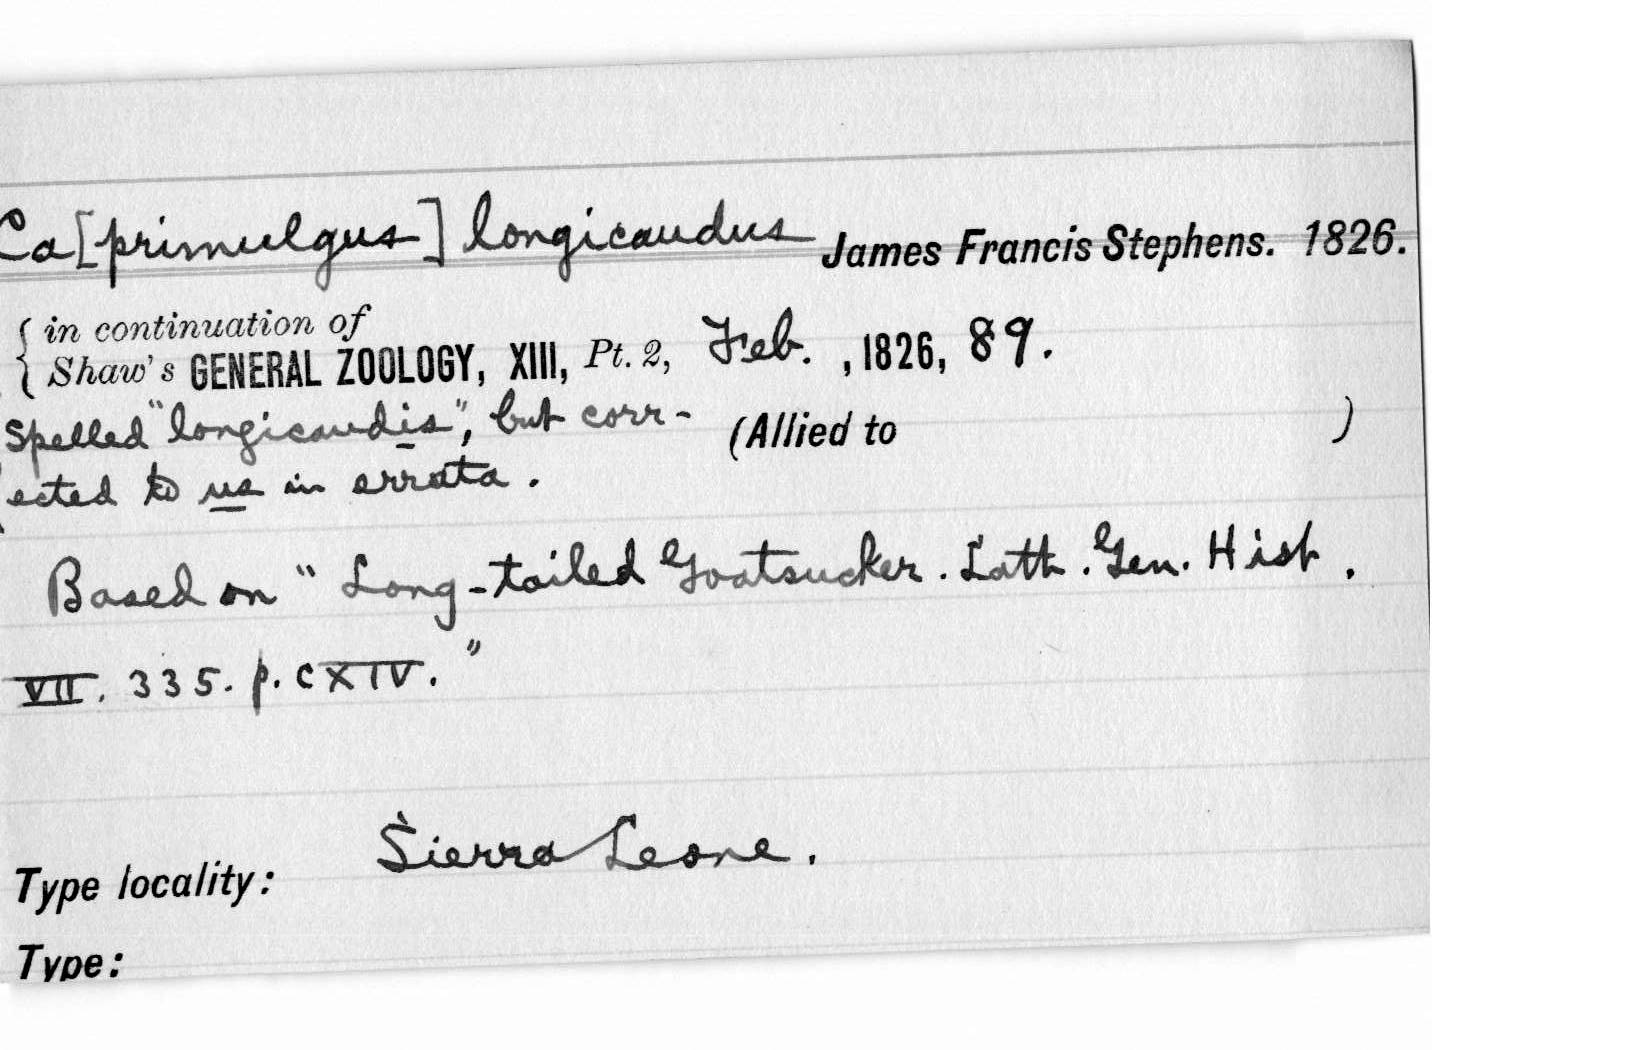 Ca[primulgus] longicaudus James Francis Stephens. 1826.
{ in continuation of
{ Shaw's GENERAL ZOOLOGY, XIII, Pt. 2, Feb. , 1826, 89.
Spelled "longicaudis", but corr- (Allied to )
ected to us in errata.
Based on "Long-tailed Goatsucker. Lath. Gen. Hist.
VII. 335. p. CXIV."
Type locality: Sierra Leone.
Type: